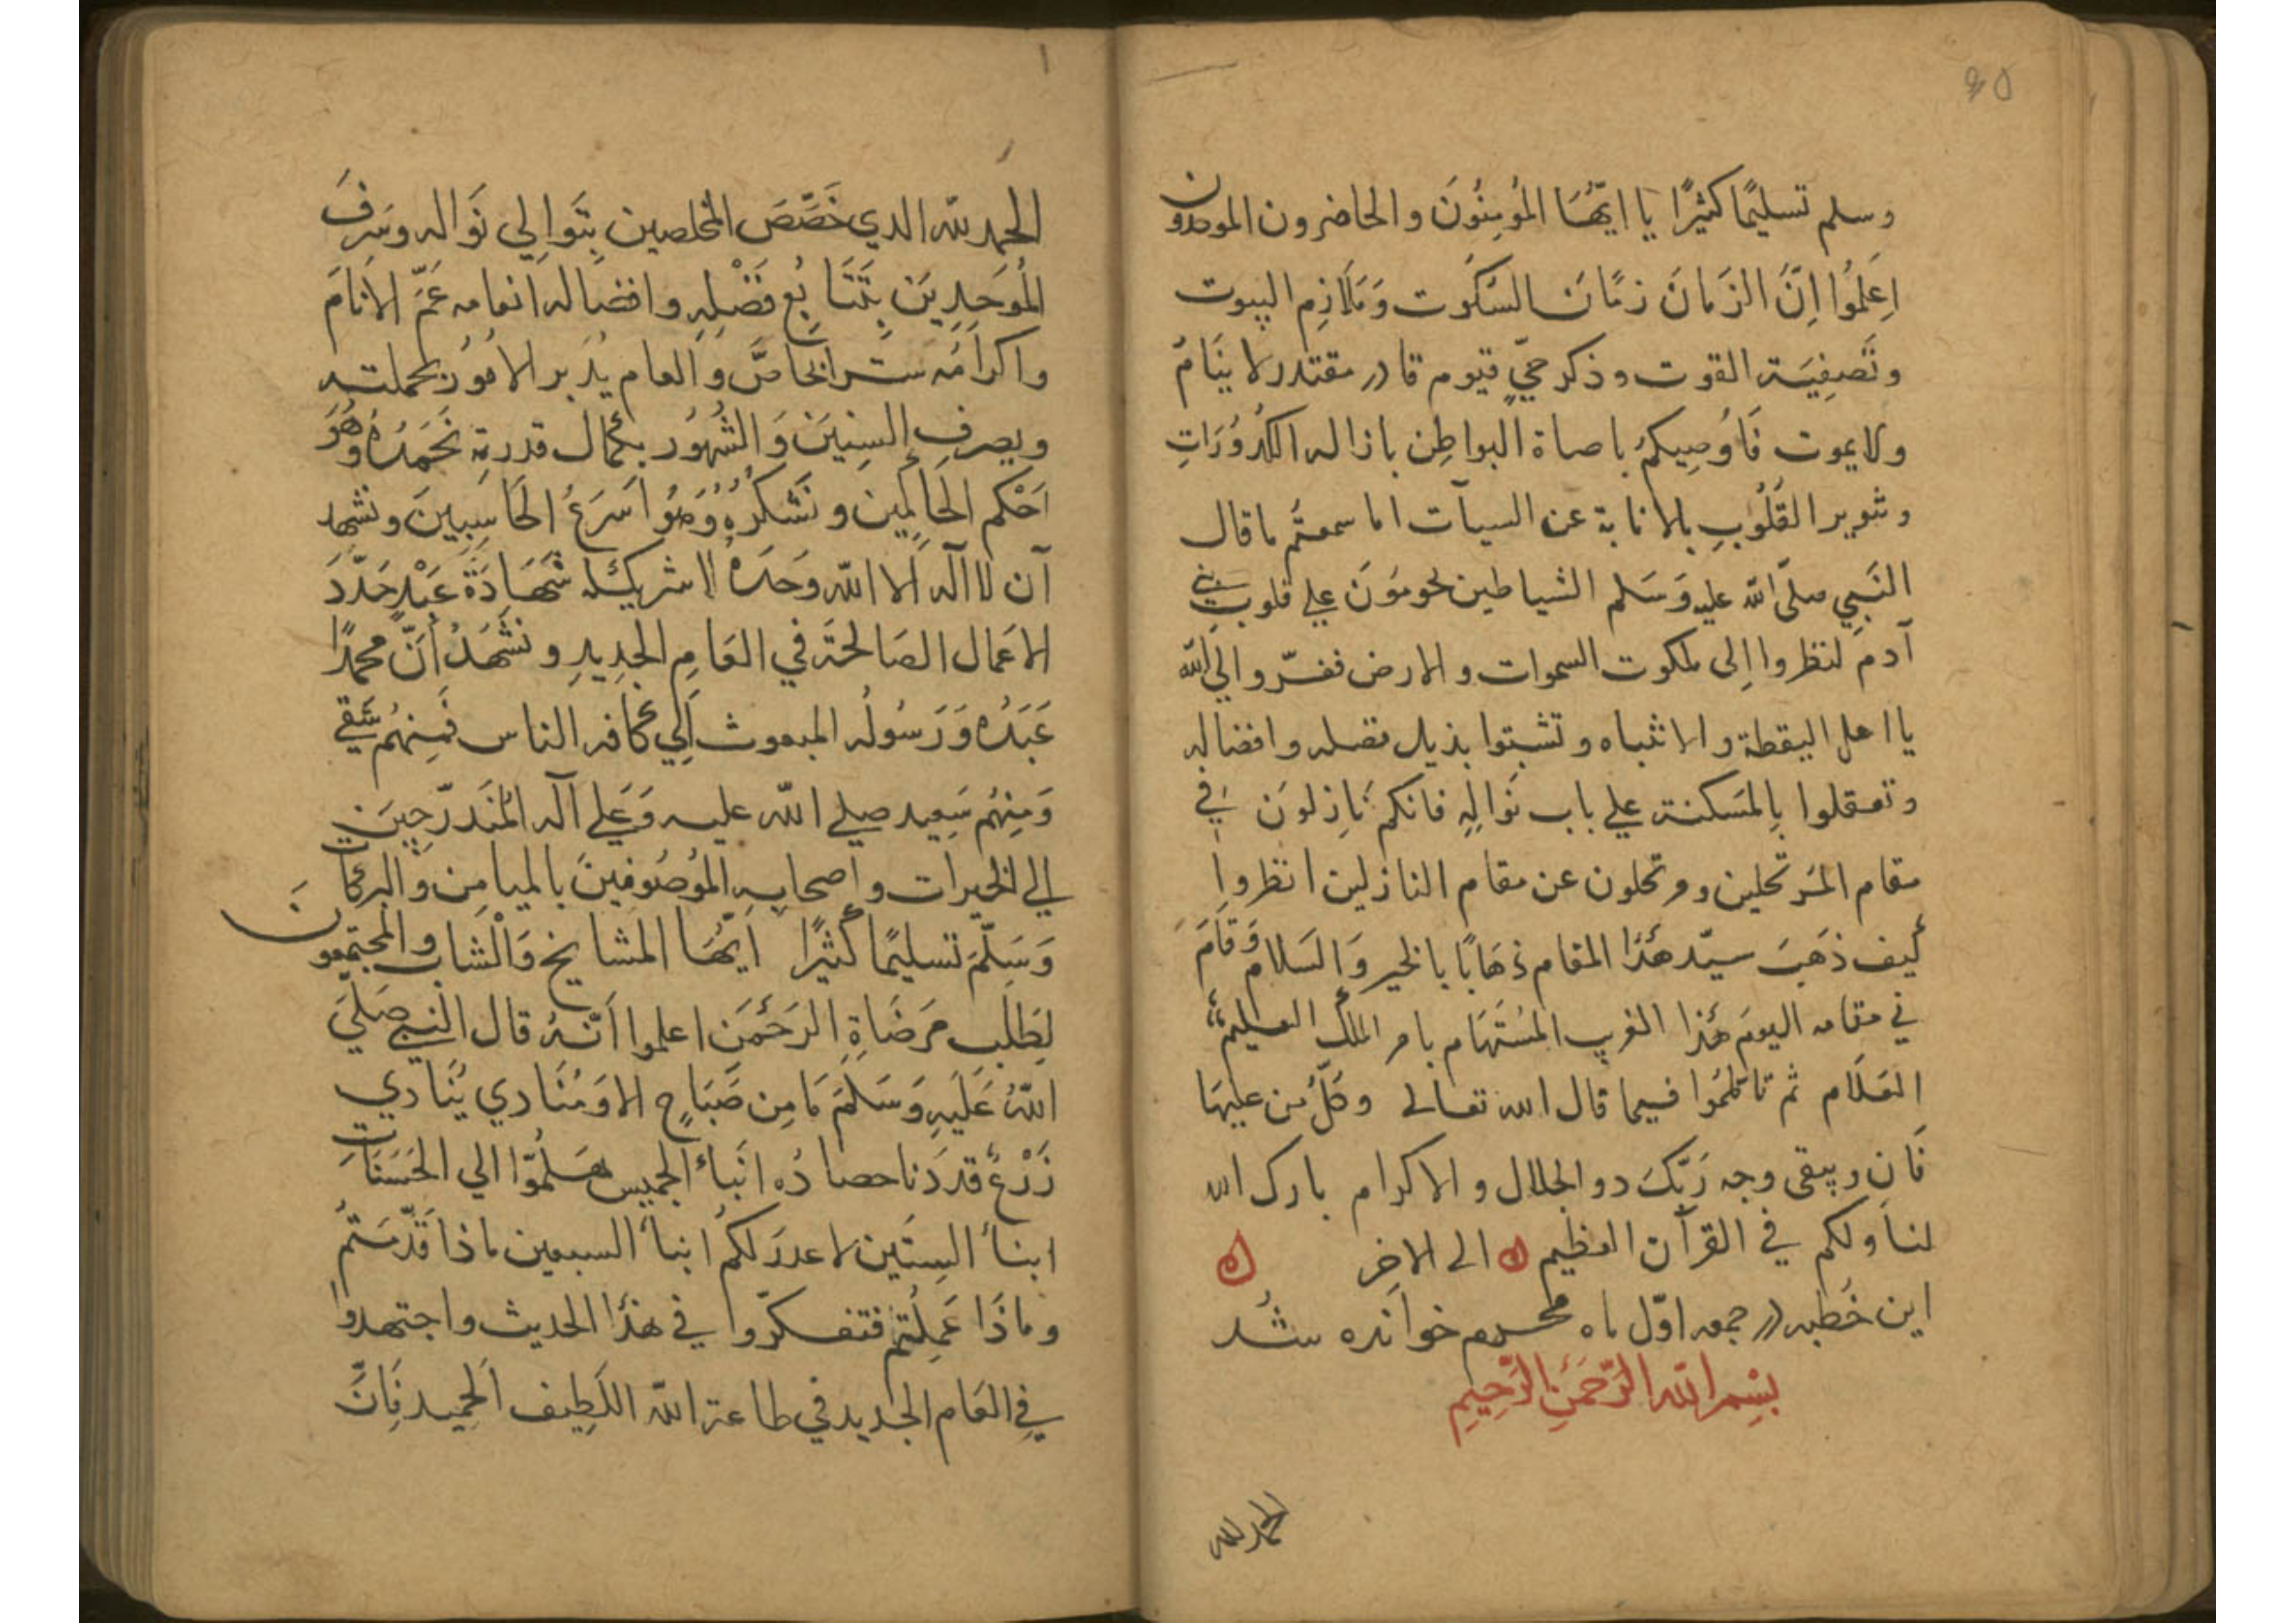 وسلم تسليمًا كثيرًا يا ايّها المُومِنُونَ والحاضرون الموحدون
اِعلَمُوا اِنَّ الزَمانَ زمَانَ السكَوت وَمَلَازِم البيوت
وتَصفِيَة القوت وذكر حيٍّ قيوم قادر مقتدر لا ينَامُ
ولا يموت فَاُوصِيكمُ باصاة البواطِن بازاله الكدُورَاتِ
وتنوير القُلُوبِ بالانابة عن السيآت اما سمعتُم ما قال
النَبِي صلّى الله عليه وَسَلم الشياطين يحومَوُنَ علي قلوبِ بني
آدم لنظروا اِلى ملكوت السموات والارض ففرّوا الَي الله
يا اهل اليقظة والانتباه وتشبتوا بذيل فضله وافضاله
وتعقلوا بِالمَسكنة علي باب نَوالِهِ فانكم نَازِلونَ في
مقام المَرتحلين ومرتحلون عن مقام النازلين انظروا
كيف ذَهَبَ سيّد هَذَا المقام ذهَابًا بالخير وَالسَلام وَقَامَ
في مقامه اليومَ هَذا الغريب المسُتَهَام بامر الملك العليم
العَلَام ثم تاملَمُوا فيما قال الله تعالى وكَلُّ من عليهَا
فَانِ ويبقى وجه رَبّكَ دو الجلال والاكرام بارك الله
لنا ولكم في القرآن العظيم ه الى الاخِر ه
اين خُطبه در جمعه اوّل ماه محرم خوانده شد
بِسْمِ اللّهِ الرَّحمَنِ الرَّحِيمِ
الحمد لله
الحمد لله الدي خَصَّصَ المخلصين بِتَوالِي نَواله وشرفَ
المُوحَدِينَ بِتَتَابُعِ فَضْلِهِ وافضاله انعامه عَمَّ الانَامَ
واكرامُه ستر الخاصَّ وَالعام يدَبر الامُوُر بحكمته
ويصرف السِنِينَ وَالشهُوُر بكمال قدرته نَحَمدُهُ وهُوَ
اَحَكم الحَاكِمِين ونَشكرُهُ وُهوُ اَسَرعُ الحَاسِبِينَ ونشهد
آن لا اله الا الله وَحدَهُ لا شريك له شَهَادَةَ عَبْدٍ جَدَّدَ
الاعَمال الصَالحَةَ في العَامِ الجدِيدِ ونشَهَدُ اَنَّ محمدًا
عَبَدُه وَرَسُولُه المبعوث اِلي كافه الناس فَمِنهُم شَقي
وَمِنهُم سَعِيد صلي الله عليه وَعَلي آله المُنَدرّجِينَ
الي الخيرات واصحابِه المُوصُوفِينَ بالميامِن وَالبركات
وَسَلّمَ تسليمًا كثيرًا اَيّهَا المشايخ وَالْشاب والمجتمِعونَ
لِطَلَب مَرضَاةِ الرَحَمنَ اعلموا اَنّهُ قال النبي صَليَ
اللهُ عَلَيهِ وَسَلَمَ مَا مِن صَبَاحٍ الا وَمُنَادي يُنَادي
زَرْعُ قد دَنا حصادُه انباُ الخميس هَلُموّا الي الحَسَنَاتِ
ابناُ السِتَين لا عدر لكمُ ابناُ السبعين ماذا قَدّمَتمُ
وماذَا عَمِلتُم فتفكرّوا في هذا الحديث واجتهدوا
في العَام الجديد في طاعة الله اللَطِيف الحميد فَاِنَّ